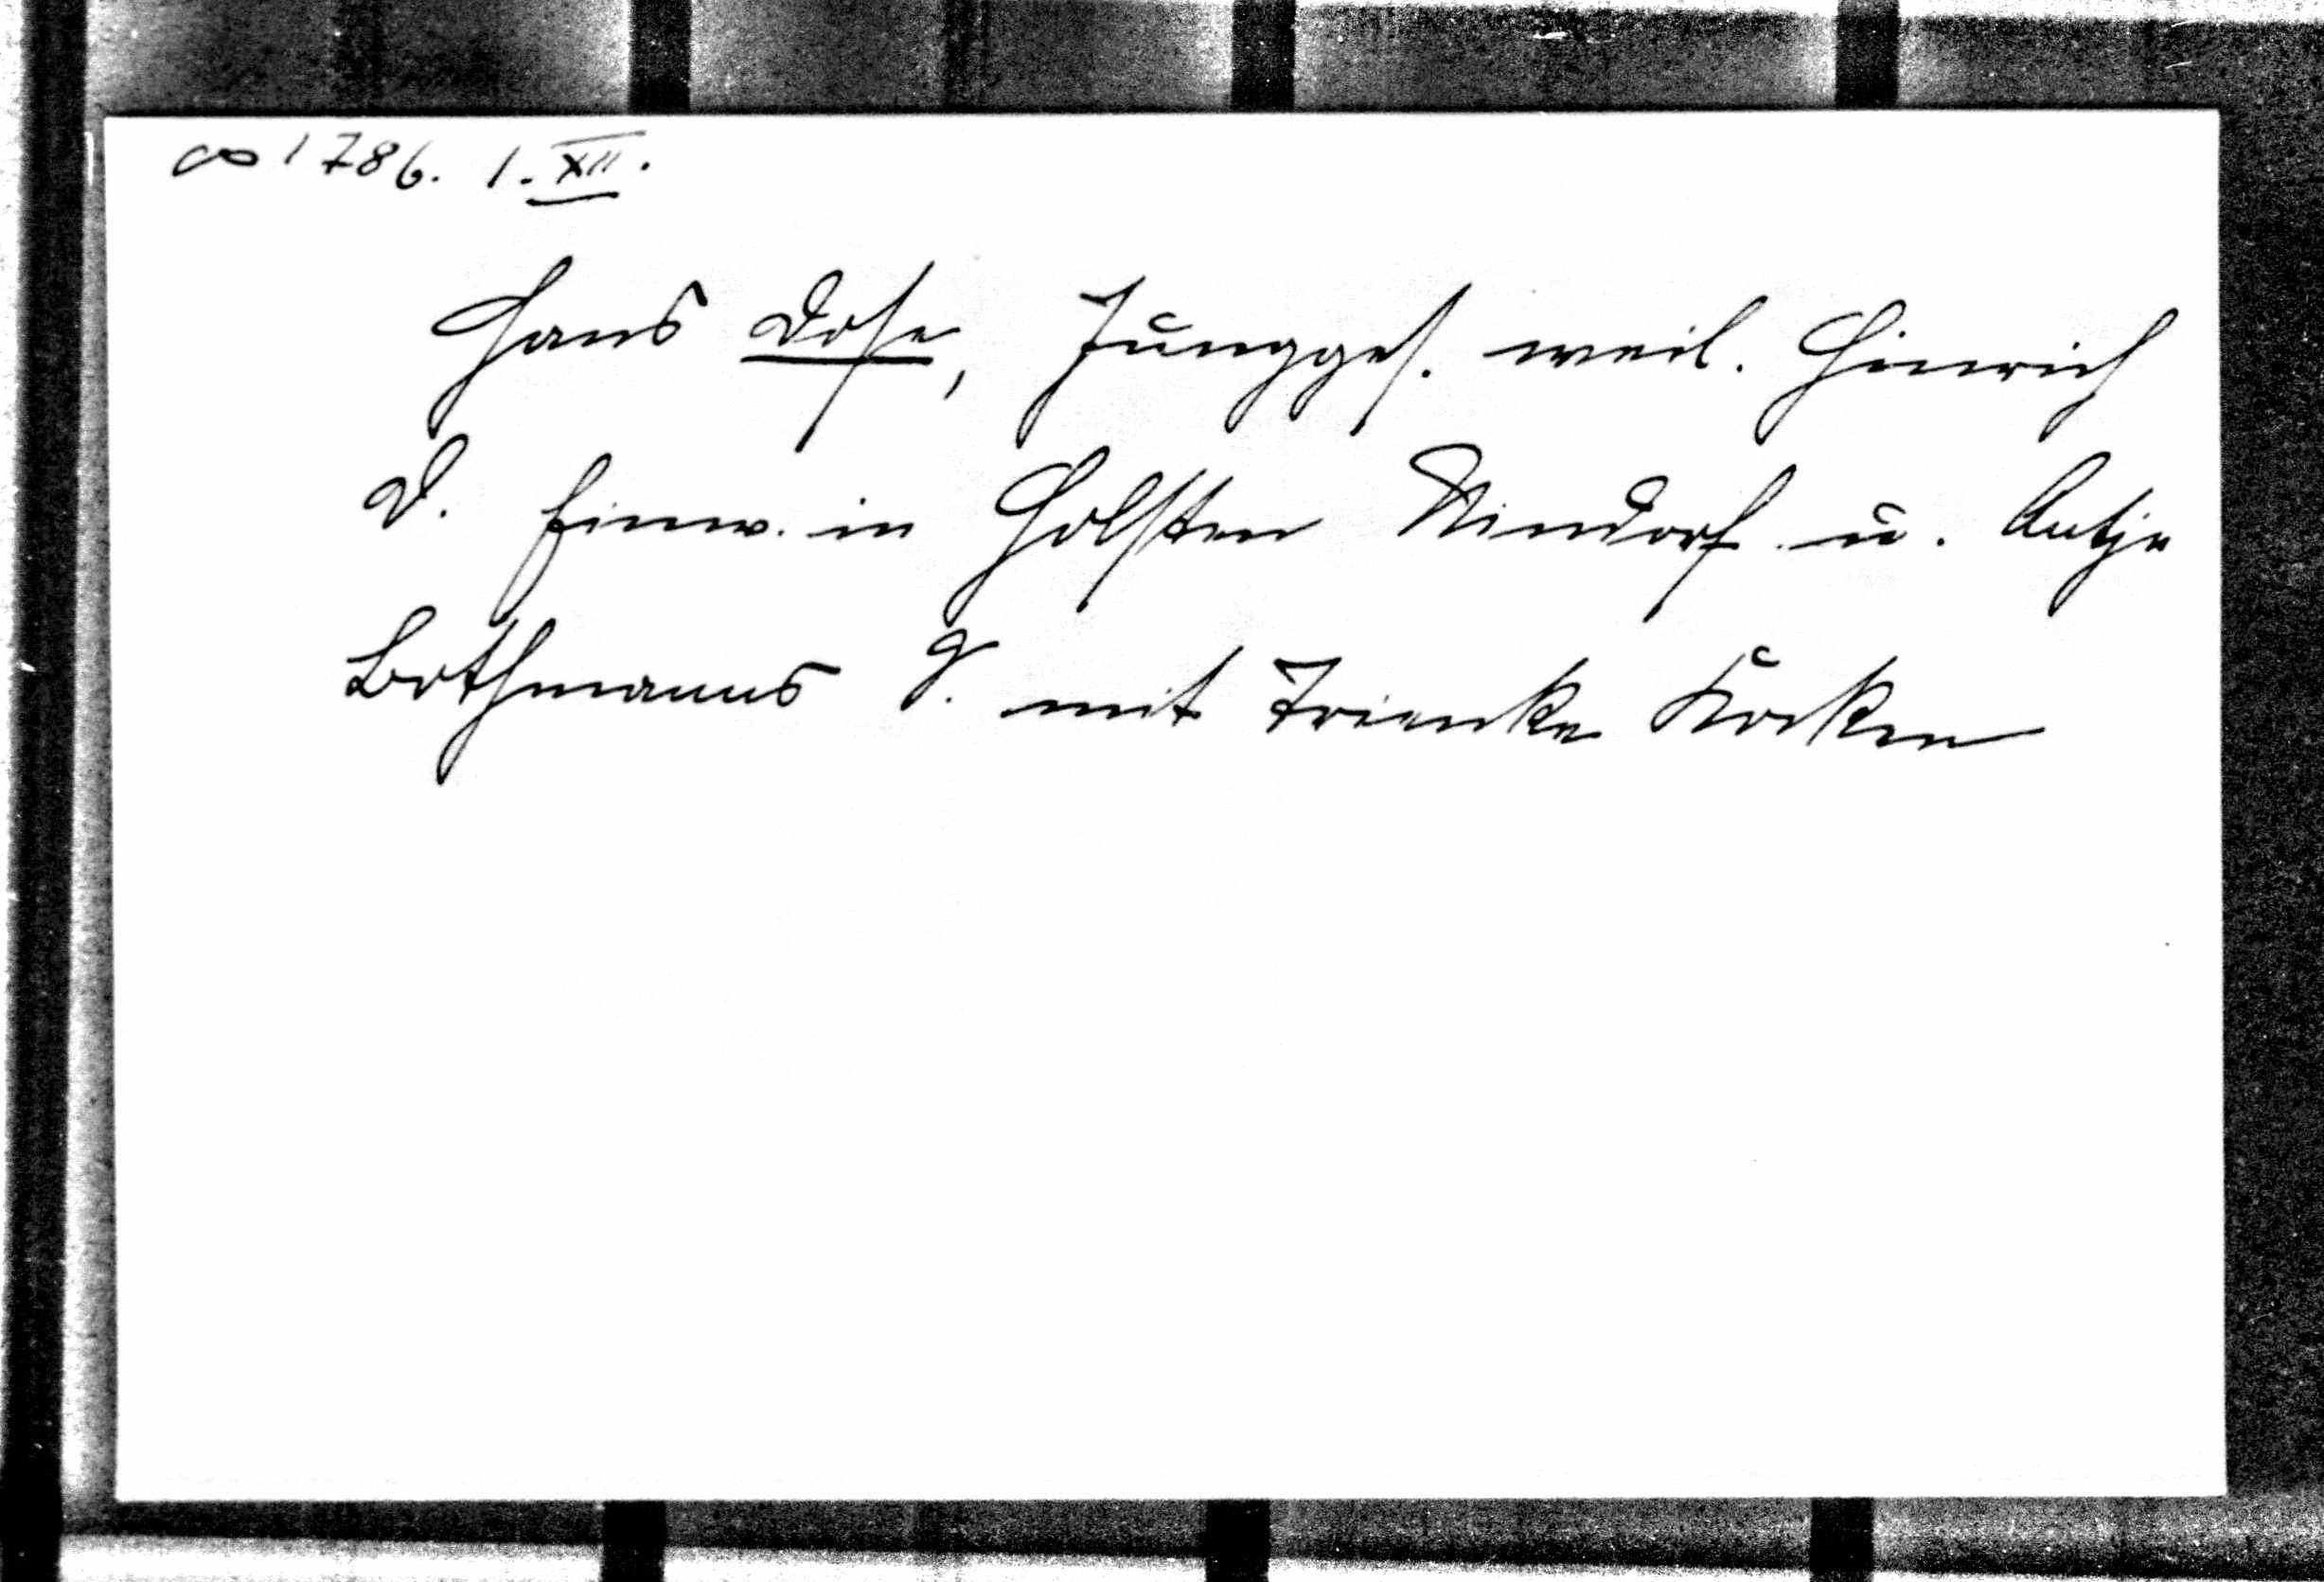 ∞ 1786. 1. XII.
Hans Dose, Jungges. weil. Hinrich
D. Einw. in Holsten Nindorf u. Antje
Bothmanns S. mit Trienke